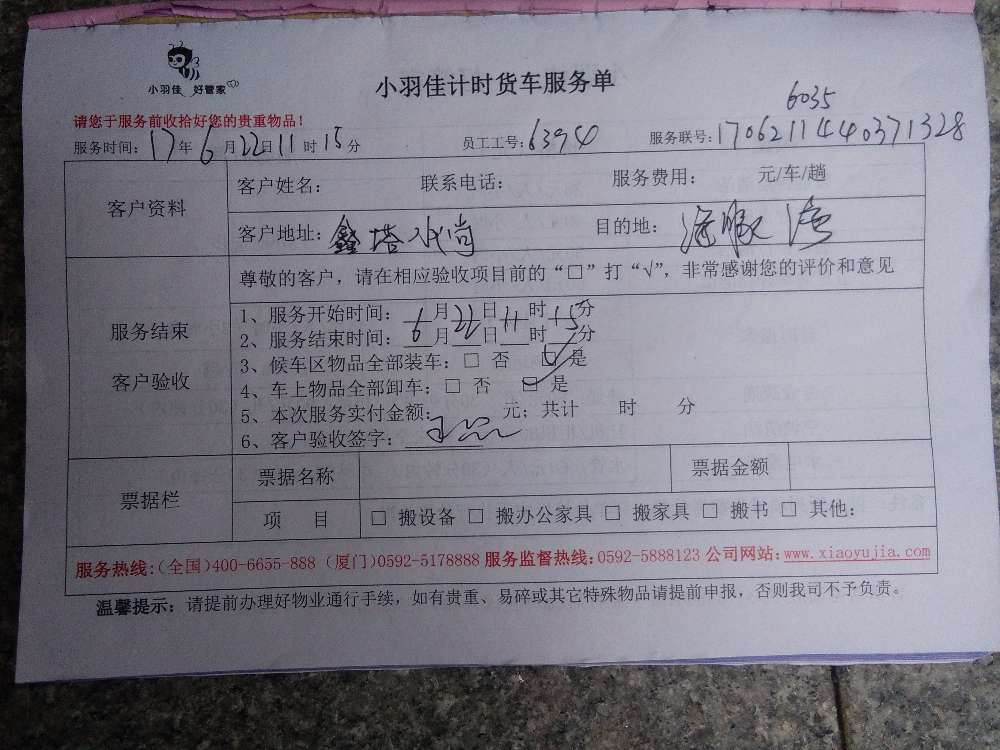 小羽佳 好管家
小羽佳计时货车服务单
6035
请您于服务前收拾好您的贵重物品！
服务时间：17年6月22日11时15分 员工工号：63940 服务联号：1706211440371328
客户资料
客户姓名： 联系电话： 服务费用： 元/车/趟
客户地址：鑫塔水尚 目的地：
服务结束
客户验收
尊敬的客户，请在相应验收项目前的“□”打“√”，非常感谢您的评价和意见
1、服务开始时间：6月22日11时15分
2、服务结束时间：月日时分
3、候车区物品全部装车：□ 否 □ 是
4、车上物品全部卸车：□ 否 □ 是
5、本次服务实付金额： 元；共计 时 分
6、客户验收签字：
票据栏
票据名称 票据金额
项 目 □ 搬设备 □ 搬办公家具 □ 搬家具 □ 搬书 □ 其他：
服务热线：(全国)400-6655-888 (厦门)0592-5178888 服务监督热线：0592-5888123 公司网站：www.xiaoyujia.com
温馨提示：请提前办理好物业通行手续，如有贵重、易碎或其它特殊物品请提前申报，否则我司不予负责。